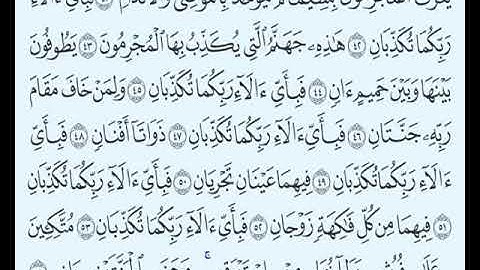 يُعْرَفُ ٱلْمُجْرِمُونَ بِسِيمَٰهُمْ فَيُؤْخَذُ بِٱلنَّوَٰصِي وَٱلْأَقْدَامِ ٤١ فَبِأَيِّ ءَالَآءِ
رَبِّكُمَا تُكَذِّبَانِ ٤٢ هَٰذِهِۦ جَهَنَّمُ ٱلَّتِي يُكَذِّبُ بِهَا ٱلْمُجْرِمُونَ ٤٣ يَطُوفُونَ
بَيْنَهَا وَبَيْنَ حَمِيمٍ ءَانٍ ٤٤ فَبِأَيِّ ءَالَآءِ رَبِّكُمَا تُكَذِّبَانِ ٤٥ وَلِمَنْ خَافَ مَقَامَ
رَبِّهِۦ جَنَّتَانِ ٤٦ فَبِأَيِّ ءَالَآءِ رَبِّكُمَا تُكَذِّبَانِ ٤٧ ذَوَاتَآ أَفْنَانٍ ٤٨ فَبِأَيِّ
ءَالَآءِ رَبِّكُمَا تُكَذِّبَانِ ٤٩ فِيهِمَا عَيْنَانِ تَجْرِيَانِ ٥٠ فَبِأَيِّ ءَالَآءِ رَبِّكُمَا تُكَذِّبَانِ
٥١ فِيهِمَا مِن كُلِّ فَٰكِهَةٍ زَوْجَانِ ٥٢ فَبِأَيِّ ءَالَآءِ رَبِّكُمَا تُكَذِّبَانِ ٥٣ مُتَّكِـِٔينَ
عَلَىٰ فُرُشٍۭ بَطَآئِنُهَا مِنْ إِسْتَبْرَقٍ ۚ وَجَنَى ٱلْجَنَّتَيْنِ دَانٍ